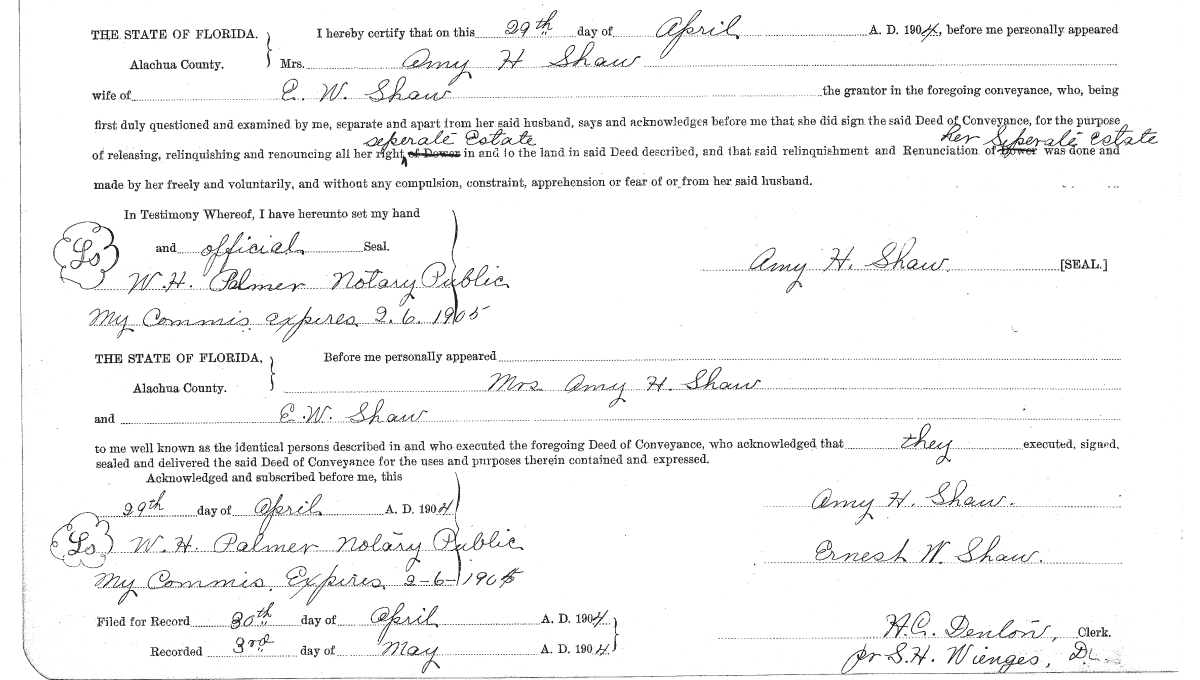 THE STATE OF FLORIDA. } I hereby certify that on this 29th day of April A. D. 1904, before me personally appeared
Alachua County. Mrs. Amy H Shaw
wife of E. W. Shaw the grantor in the foregoing conveyance, who, being
first duly questioned and examined by me, separate and apart from her said husband, says and acknowledges before me that she did sign the said Deed of Conveyance, for the purpose
seperate Estate her Seperate Estate
of releasing, relinquishing and renouncing all her right of Dower in and to the land in said Deed described, and that said relinquishment and Renunciation of Dower was done and
made by her freely and voluntarily, and without any compulsion, constraint, apprehension or fear of or from her said husband.
In Testimony Whereof, I have hereunto set my hand
Ls and official Seal.
Amy H. Shaw [SEAL.]
W.H. Palmer Notary Public
My Commis expires 2.6.1905
THE STATE OF FLORIDA, } Before me personally appeared
Alachua County. Mrs Amy H. Shaw
and E.W. Shaw
to me well known as the identical persons described in and who executed the foregoing Deed of Conveyance, who acknowledged that they executed, signed,
sealed and delivered the said Deed of Conveyance for the uses and purposes therein contained and expressed.
Acknowledged and subscribed before me, this
29th day of April A. D. 1904 Amy H. Shaw.
Ls W. H. Palmer Notary Public Ernest W. Shaw.
My Commis. Expires 2-6-1905
Filed for Record 30th day of April A. D. 1904 H.C. Denton, Clerk.
Recorded 3rd day of May A. D. 1904. pr S.H. Wienges, D.C.